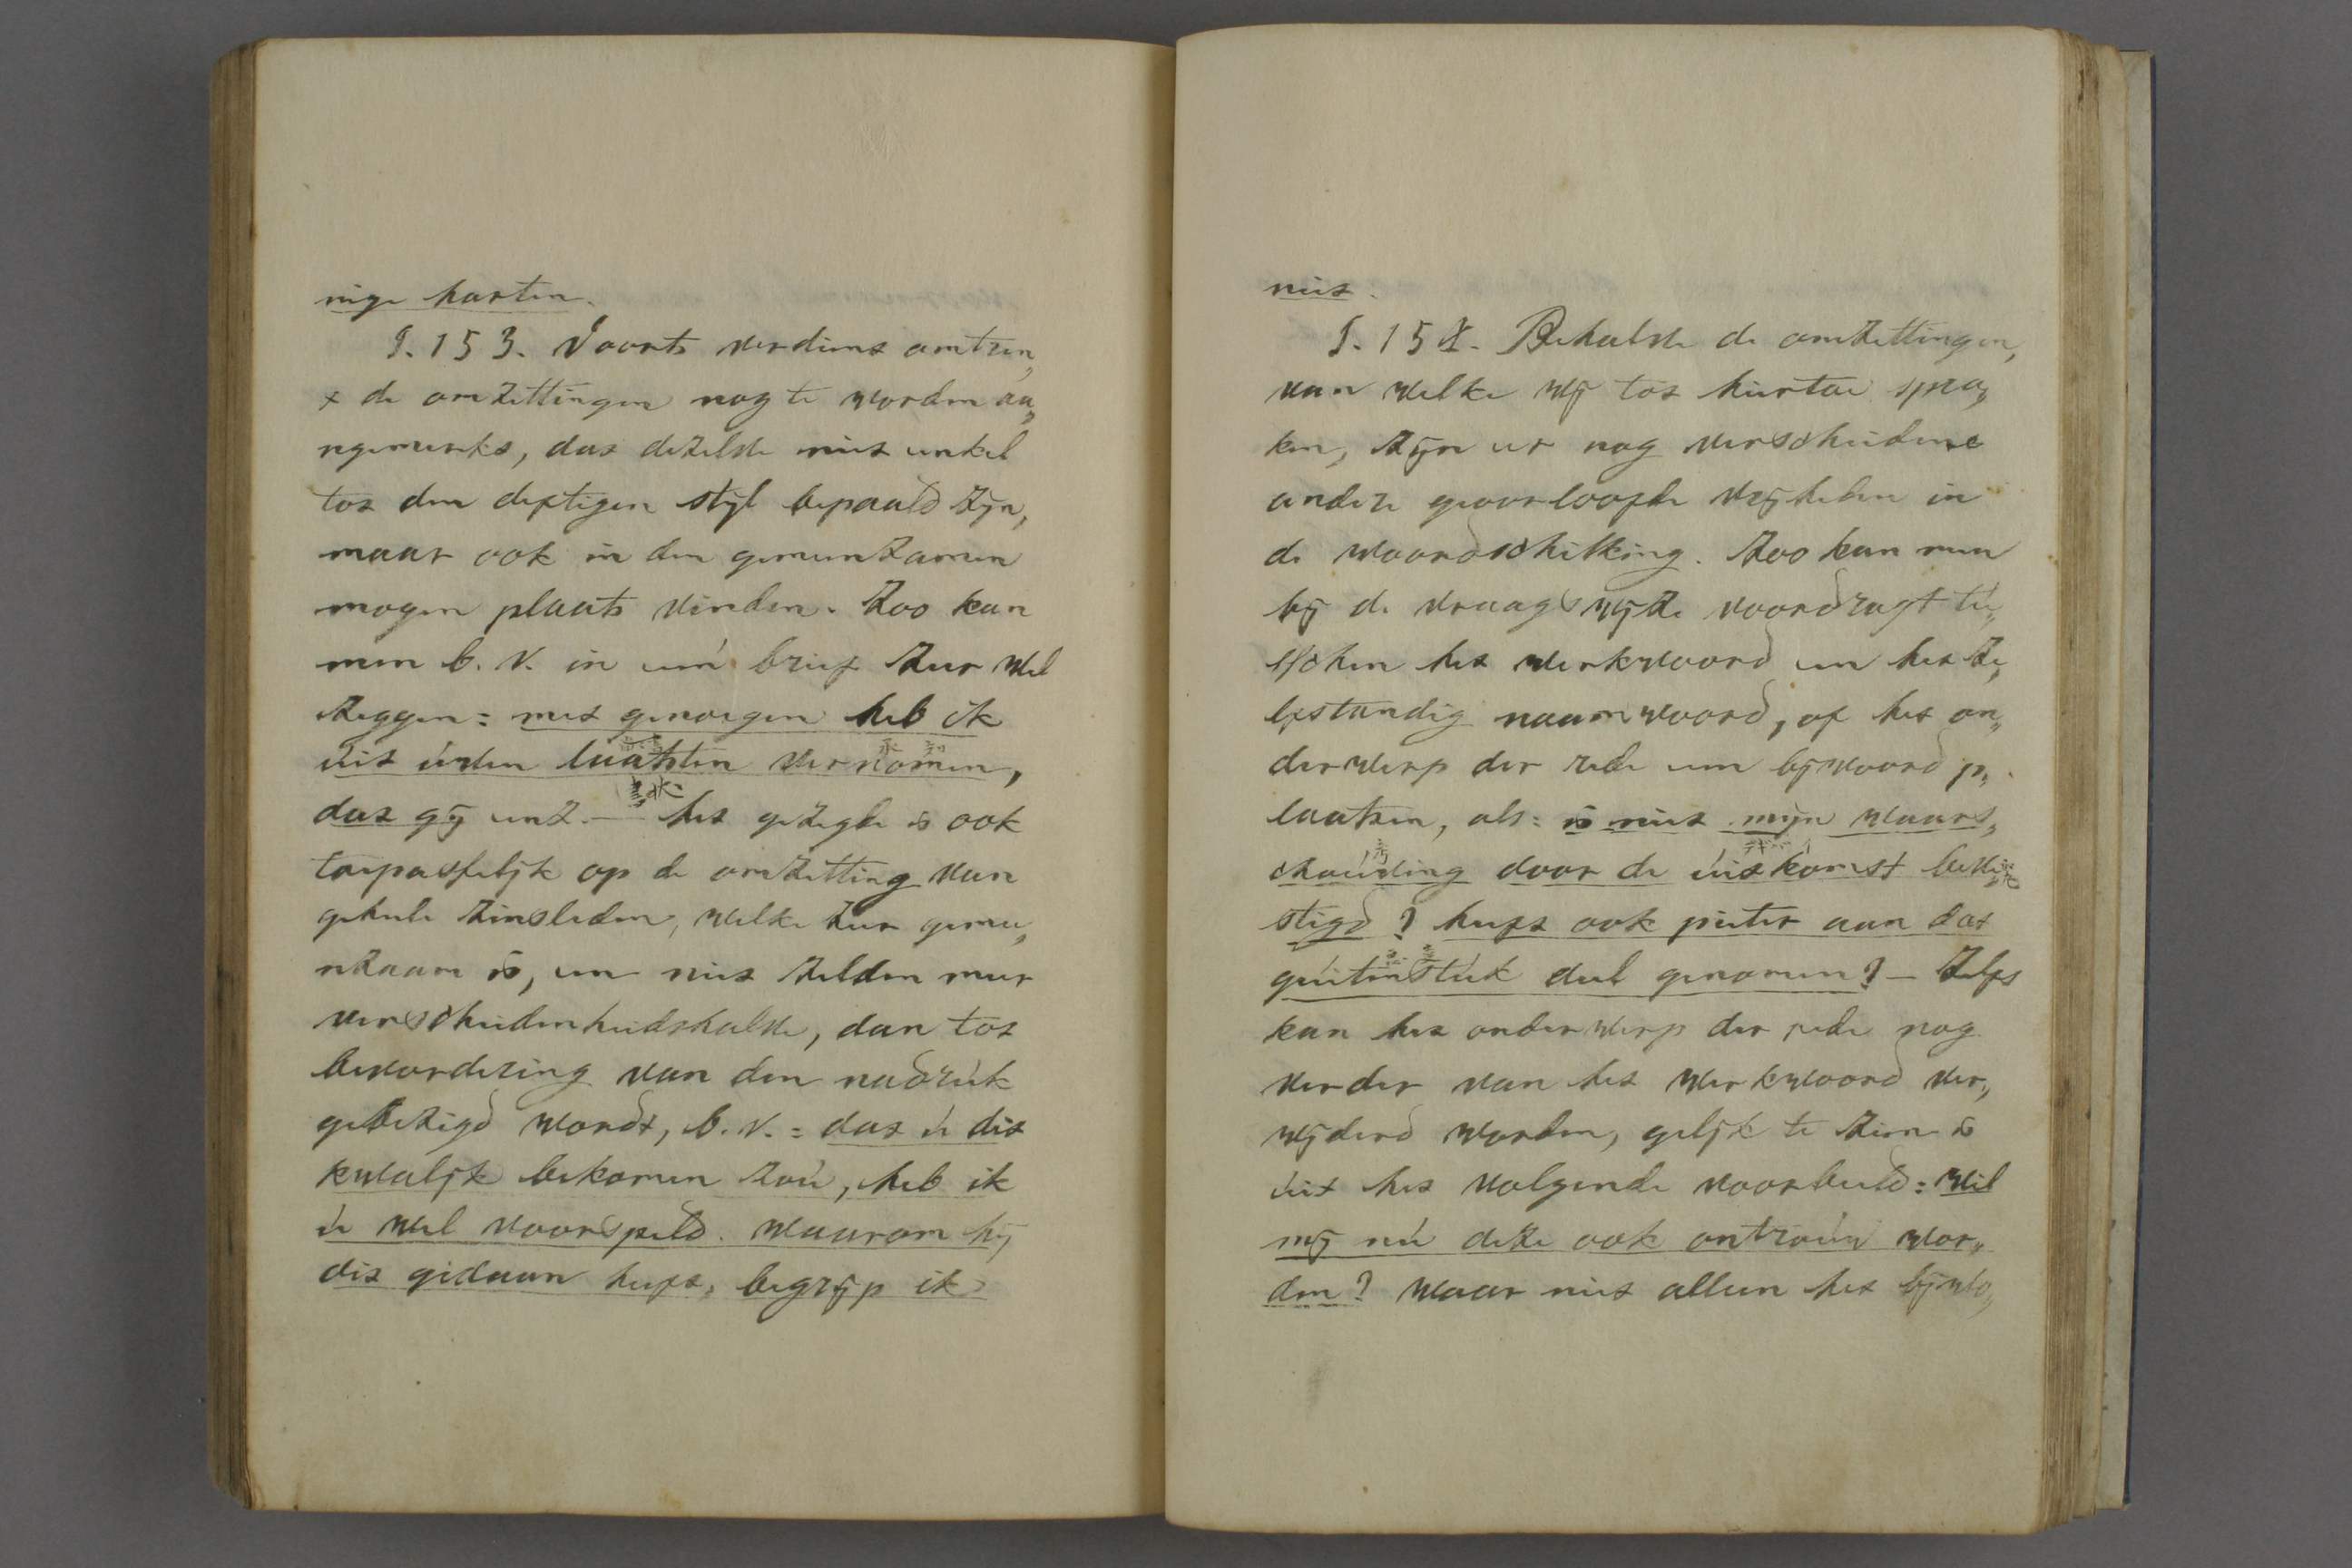 nige harten.
§. 153. Voorts verdient omtren,,
t de omzettingen nog te worden aa,,
ngemerkt, dat dezelve niet enkel
tot den deftigen stijl bepaald zijn,
maar ook in den gemeenzamen
mogen plaats vinden. Zoo kan
men b. v. in een' brief zeer wel
zeggen: met genoegen heb ik
uit uwen laatsten vernomen,
dat gij enz. — het gezegde is ook
toepasselijk op de omzetting van
geheele zinsleden, welke zeer geme,,
enzaam is, en niet zelden meer
verscheidenheidshalve, dan tot
bevordering van den nadruk
gebezigd wordt, b. v.: dat u dit
kwalijk bekomen zou, heb ik
u wel voorspeld. waarom hij
dit gedaan heeft, begrijp ik
niet.
§. 154. Behalve de omzettingen,
van welke wij tot hiertoe spra,,
ken, zijn er nog verscheidene
andere geoorloofde vrijheden in
de woordschikking. Zoo kan men
bij de vraagswijze voordragt tu,,
sschen het werkwoord en het ze,,
lfstandig naamwoord, of het on,,
derwerp der rede een bijwoord p,,
laatsen, als: is niet mijn waars,,
chouwing door de uitkomst beves
stigd? heeft ook pieter aan dat
guitenstuk deel genomen? — Zelfs
kan het onderwerp der rede nog
verder van het werkwoord ver,,
wijderd worden, gelijk te zien is
uit het volgende voorbeeld: wil
mij nu deze ook ontrouw wor,,
den? waar niet alleen het bijwo,,